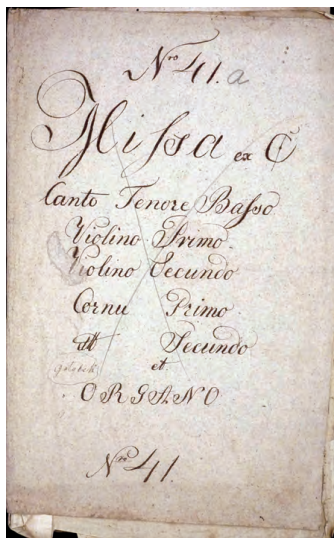 Nro 41. a
Missa ex C
Canto Tenore Basso
Violino Primo.
Violino Secundo
Cornu Primo
dtt Secundo
et
ORGANO
Nro 41.